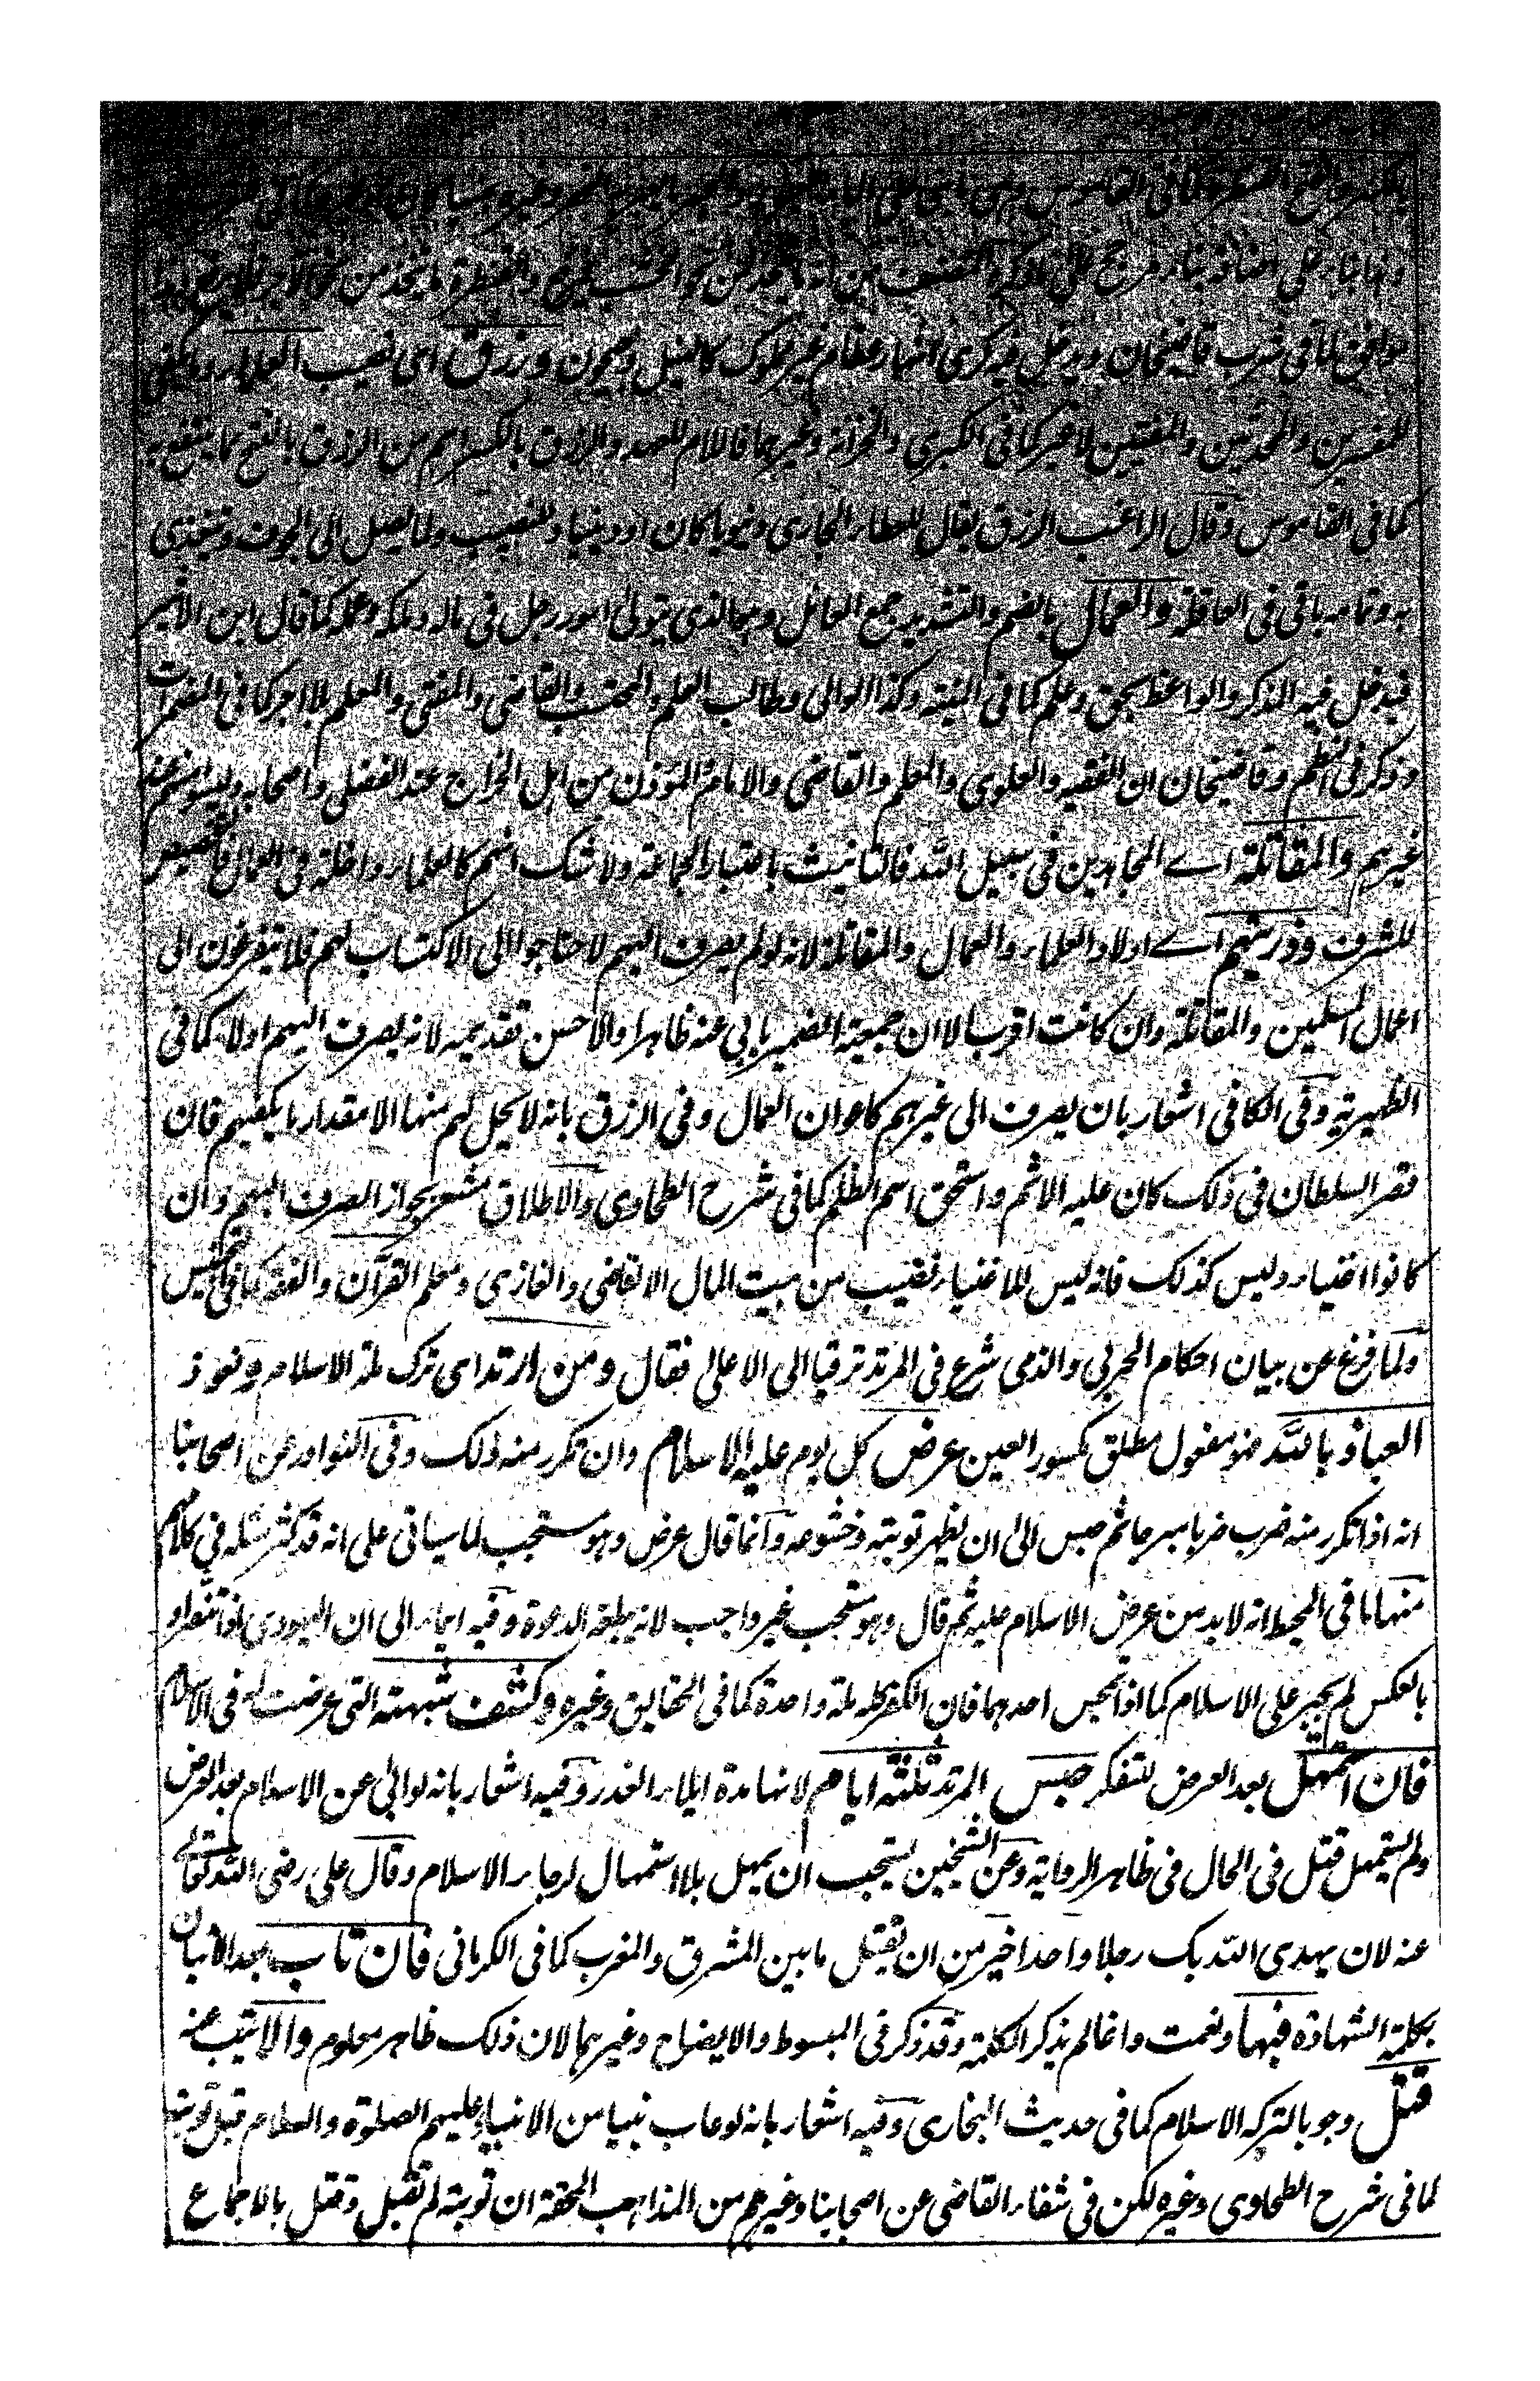 والقنطرة ما يتخذ من
موافق لما في شرب قاضيخان ويدخل فيه كرى انهار عظام غير مملوك كالنيل وجيحون ورزق اى نصيب العلماء
المفسرين والمحدثين والمفتيين لا غير كما في الكبرى والخزانة وغيرهما فاللام للعهد والرزق بالكسر اسم من الرزق بالفتح ما ينتفع به
كما في القاموس وقال الراغب الرزق يقال للعطاء الجارى دنيويا كان او دينيا وللنصيب ولما يصل الى الجوف ويتغذى
به وتمامه ياتى في العاقلة والعمال بالضم والتشديد جمع العامل وهو الذى يتولى امور رجل في ماله وملكه وعمله كما قال ابن الاثير
فيدخل فيه المذكر والواعظ بحق وعلم كما في المنية وكذا الوالى وطالب العلم والمحتسب والقاضى والمفتى والمعلم بلا اجر كما في المضمرات
وذكر في النظم وقاضيخان ان الفقيه والعلوى والمعلم والقاضى والامام والمؤذن من اهل الخراج عند الفضلى واصحابه وليسوا منه عند
غيرهم والمقاتلة اے المجاهدين في سبيل الله فالتانيث باعتبار الجماعة ولا شك انهم كالعلماء داخلة في العمال فالتخصيص
للشرف وذريتهم اے اولاد العلماء والعمال والمقاتلة لانه لو لم يصرف اليهم لاحتاجوا الى الاكتساب لهم فلا يتفرغون الى
اعمال المسلمين والمقاتلة وان كانت اقرب الا ان جمعية الضمير يابى عنه ظاهرا والاحسن تقديمه لانه يصرف اليهم اولا كما في
الظهيرية وفى الكافي اشعار بان يصرف الى غيرهم كاعوان العمال وفى الرزق بانه لا يحل لهم منها الا مقدار ما يكفيهم فان
قصر السلطان في ذلك كان عليه الاثم واستحق اسم الظلم كما في شرح الطحاوى والاطلاق مشعر بجواز الصرف اليهم وان
كانوا اغنياء وليس كذلك فانه ليس للاغنياء نصيب من بيت المال الا القاضى والغازى ومعلم القرآن والفقه كما في التجنيس
ولما فرغ عن بيان احكام الحربى والذمى شرع في المرتد ترقيا الى الاعلى فقال ومن ارتد اى ترك ملة الاسلام ونعوذ
العياذ بالله فهو مفعول مطلق بكسور العين عرض كل يوم عليه الاسلام وان تكرر منه ذلك وفى النوادر عن اصحابنا
انه اذا تكرر منه ضرب ضربا مبرحا ثم حبس الى ان يظهر توبته وخشوعه وانما قال عرض وهو مستحب لما سياتى على انه قد كثر مثله في كلامهم
منها ما في المحيط انه لا بد من عرض الاسلام عليه ثم قال وهو مستحب غير واجب لانه بلغه الدعوة وفيه ايماء الى ان اليهودى لو تنصر او
بالعكس لم يجبر على الاسلام كما اذا تمجس احدهما فان الكفر كله ملة واحدة كما في الحقايق وغيره وكشف شبهته التى عرضت له في الاسلام
فان استمهل بعد العرض للتفكر حبس المرتد ثلثة ايام لانها مدة ايلاء الغدر وفيه اشعار بانه لو ابى عن الاسلام بعد العرض
ولم يستمهل قتل في الحال في ظاهر الرواية وعن الشيخين يستحب ان يمهل بلا استمهال لرجاء الاسلام وقال على رضى الله تعالى
عنه لان يهدى الله بك رجلا واحدا خير من ان تقتل ما بين المشرق والمغرب كما في الكرمانى فان تاب بعد الاتيان
بكلمة الشهادة فبها ونعمت وانما لم يذكر الكلمة وقد ذكر في المبسوط والايضاح وغيرهما لان ذلك ظاهر معلوم والا يتب عنه
قتل وجوبا لتركه الاسلام كما في حديث البخارى وفيه اشعار بانه لو عاب نبيا من الانبياء عليهم الصلوة والسلام قبل توبته
كما في شرح الطحاوى وغيره لكن في شفاء القاضى عن اصحابنا وغيرهم من المذاهب الحقة ان توبته لم تقبل وقتل بالاجماع